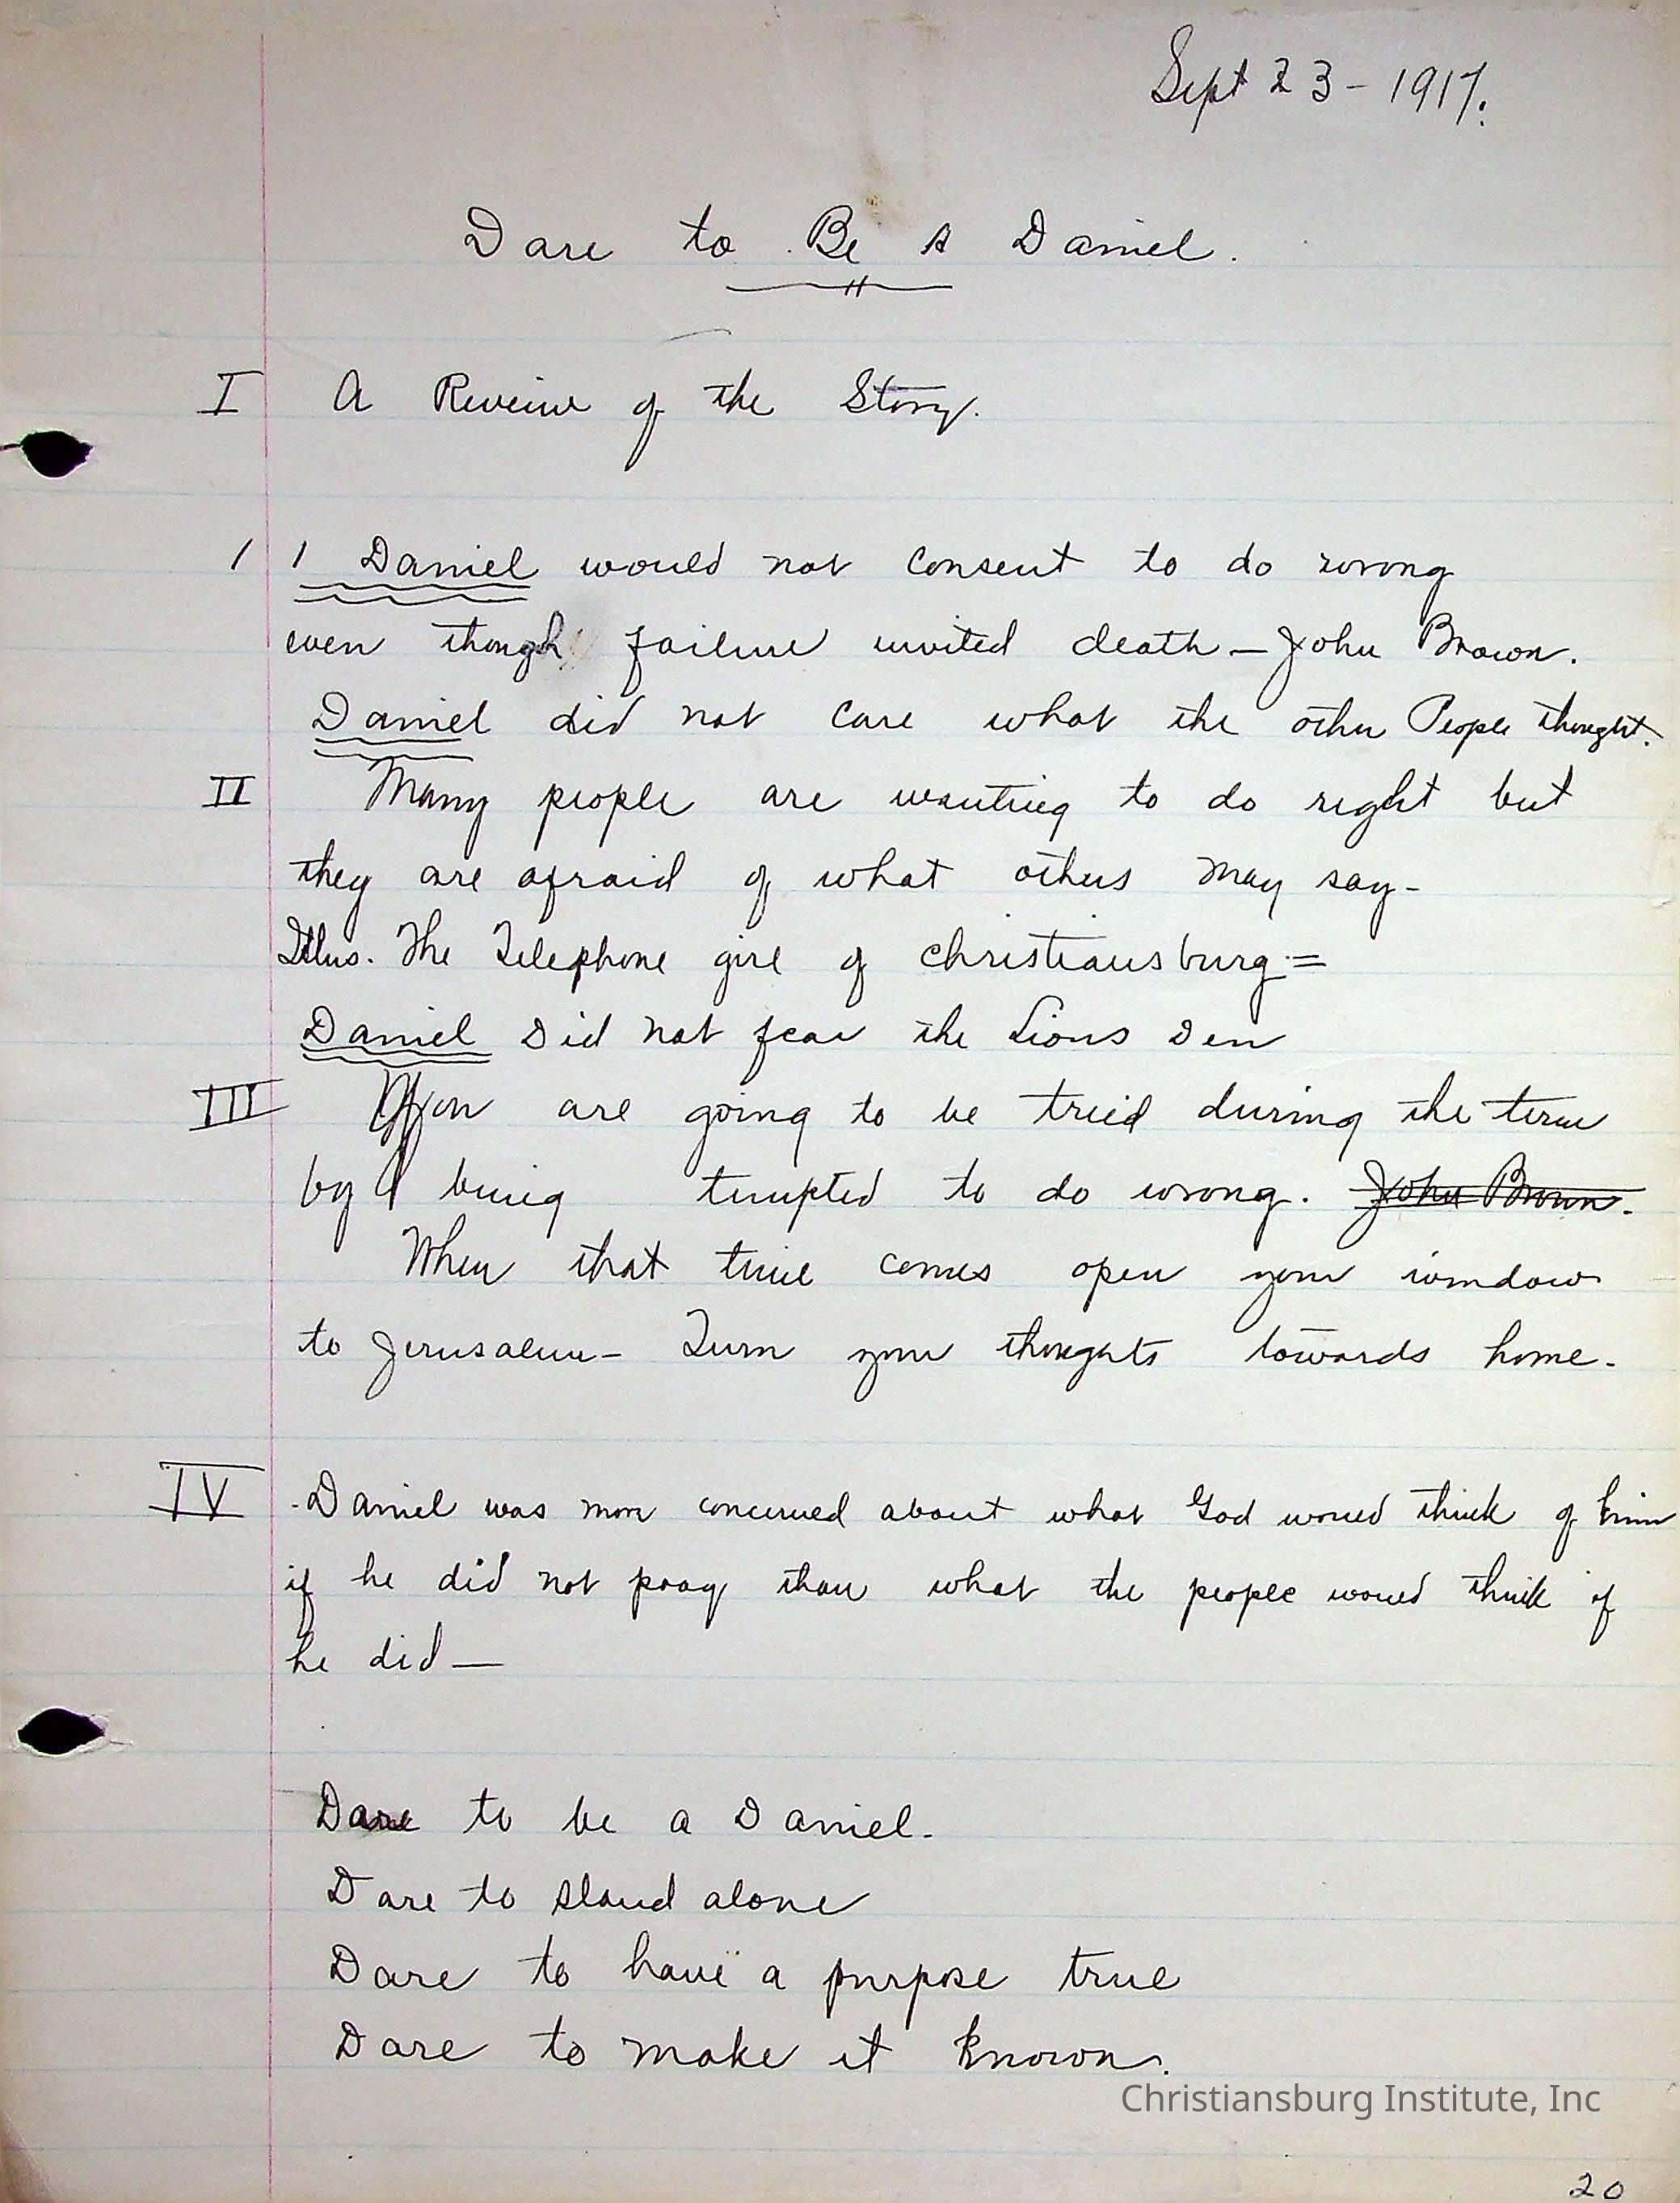 Sept 23 - 1917.
Dare to Be A Daniel.
I A Reveiw of the Story.
1 1 Daniel would not consent to do wrong
even though failure invited death - John Brown.
Daniel did not care what the other People thought.
II Many people are wanting to do right but
they are afraid of what others may say -
Illus. The Telephone girl of Christiansburg =
Daniel Did not fear the Lions Den
III You are going to be tried during the term
by being tempted to do wrong. John Brown.
When that time comes open your window
to Jerusalem - Turn your thoughts towards home.
IV - Daniel was more concerned about what God would think of him
if he did not pray than what the people would think if
he did -
Dare to be a Daniel.
Dare to stand alone
Dare to have a purpose true
Dare to make it known.
Christiansburg Institute, Inc
20